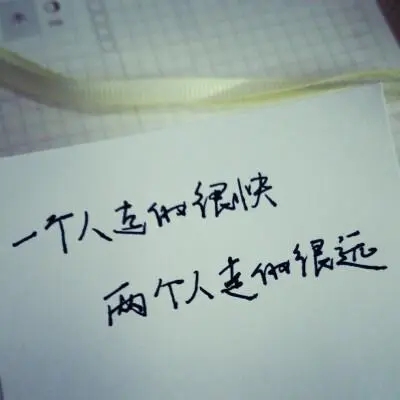 一个人走的很快
两个人走的很远